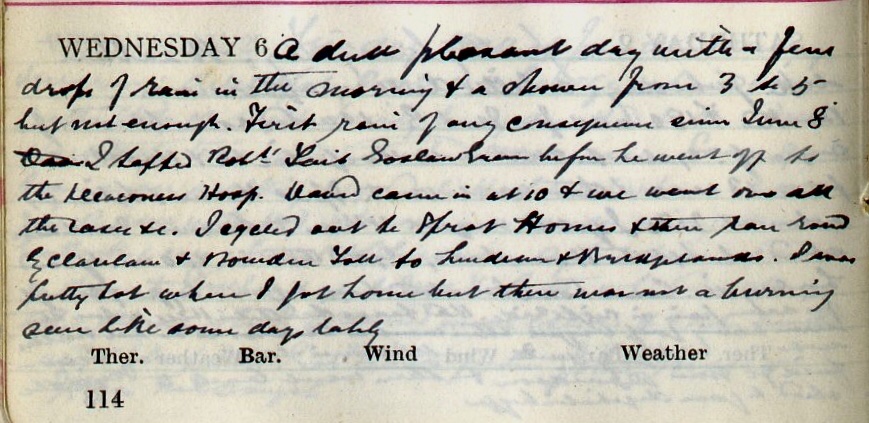 WEDNESDAY 6 A dull pleasant day with a few
drops of rain in the morning & a shower from 3 to 5
but not enough. First rain of any consequence since June 8
I Robt. before he went off to
the Deaconess Hosp. David came in at 10 & we went over all
the cases &c. I cycled out to Sprot Homes & then ran round
& Bowden Toll to Lindean & Bridgelands. I was
pretty hot when I got home but there was not a burning
sun like some days lately
Ther. Bar. Wind Weather
114